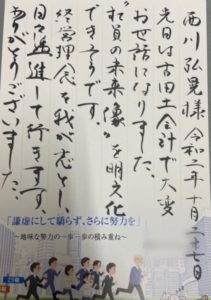 西川弘晃様 令和二年十月二十七日
先日は古田土会計で大変
お世話になりました。
"社員の未来像"を明文化
できそうです。
経営理念を我が志とし、
日々邁進して行きます。
ありがとうございました。
「謙虚にして驕らず、さらに努力を」
～地味な努力の一歩一歩の積み重ね～